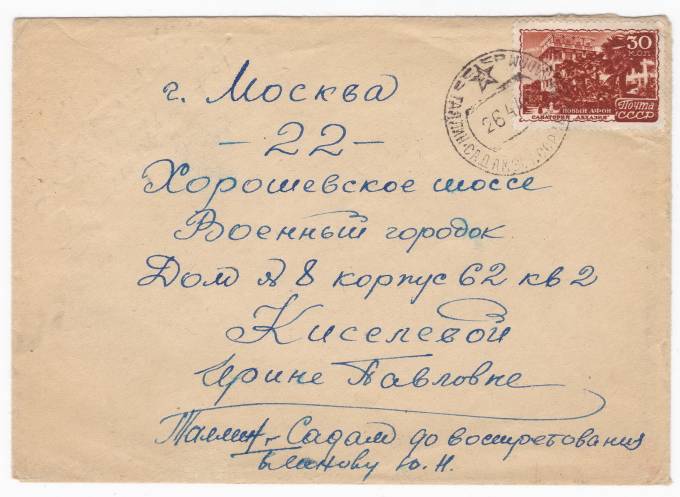 30
КОП
НОВЫЙ АФОН
САНАТОРИЙ АБХАЗИЯ
Почта
СССР
ТАЛЛИН-САДАМ
26.4
г. Москва
-22-
Хорошевское шоссе
Военный городок
Дом № 8 корпус 62 кв 2
Киселевой
Ирине Павловне
Таллин-Садам до востретования
Ю. Н.